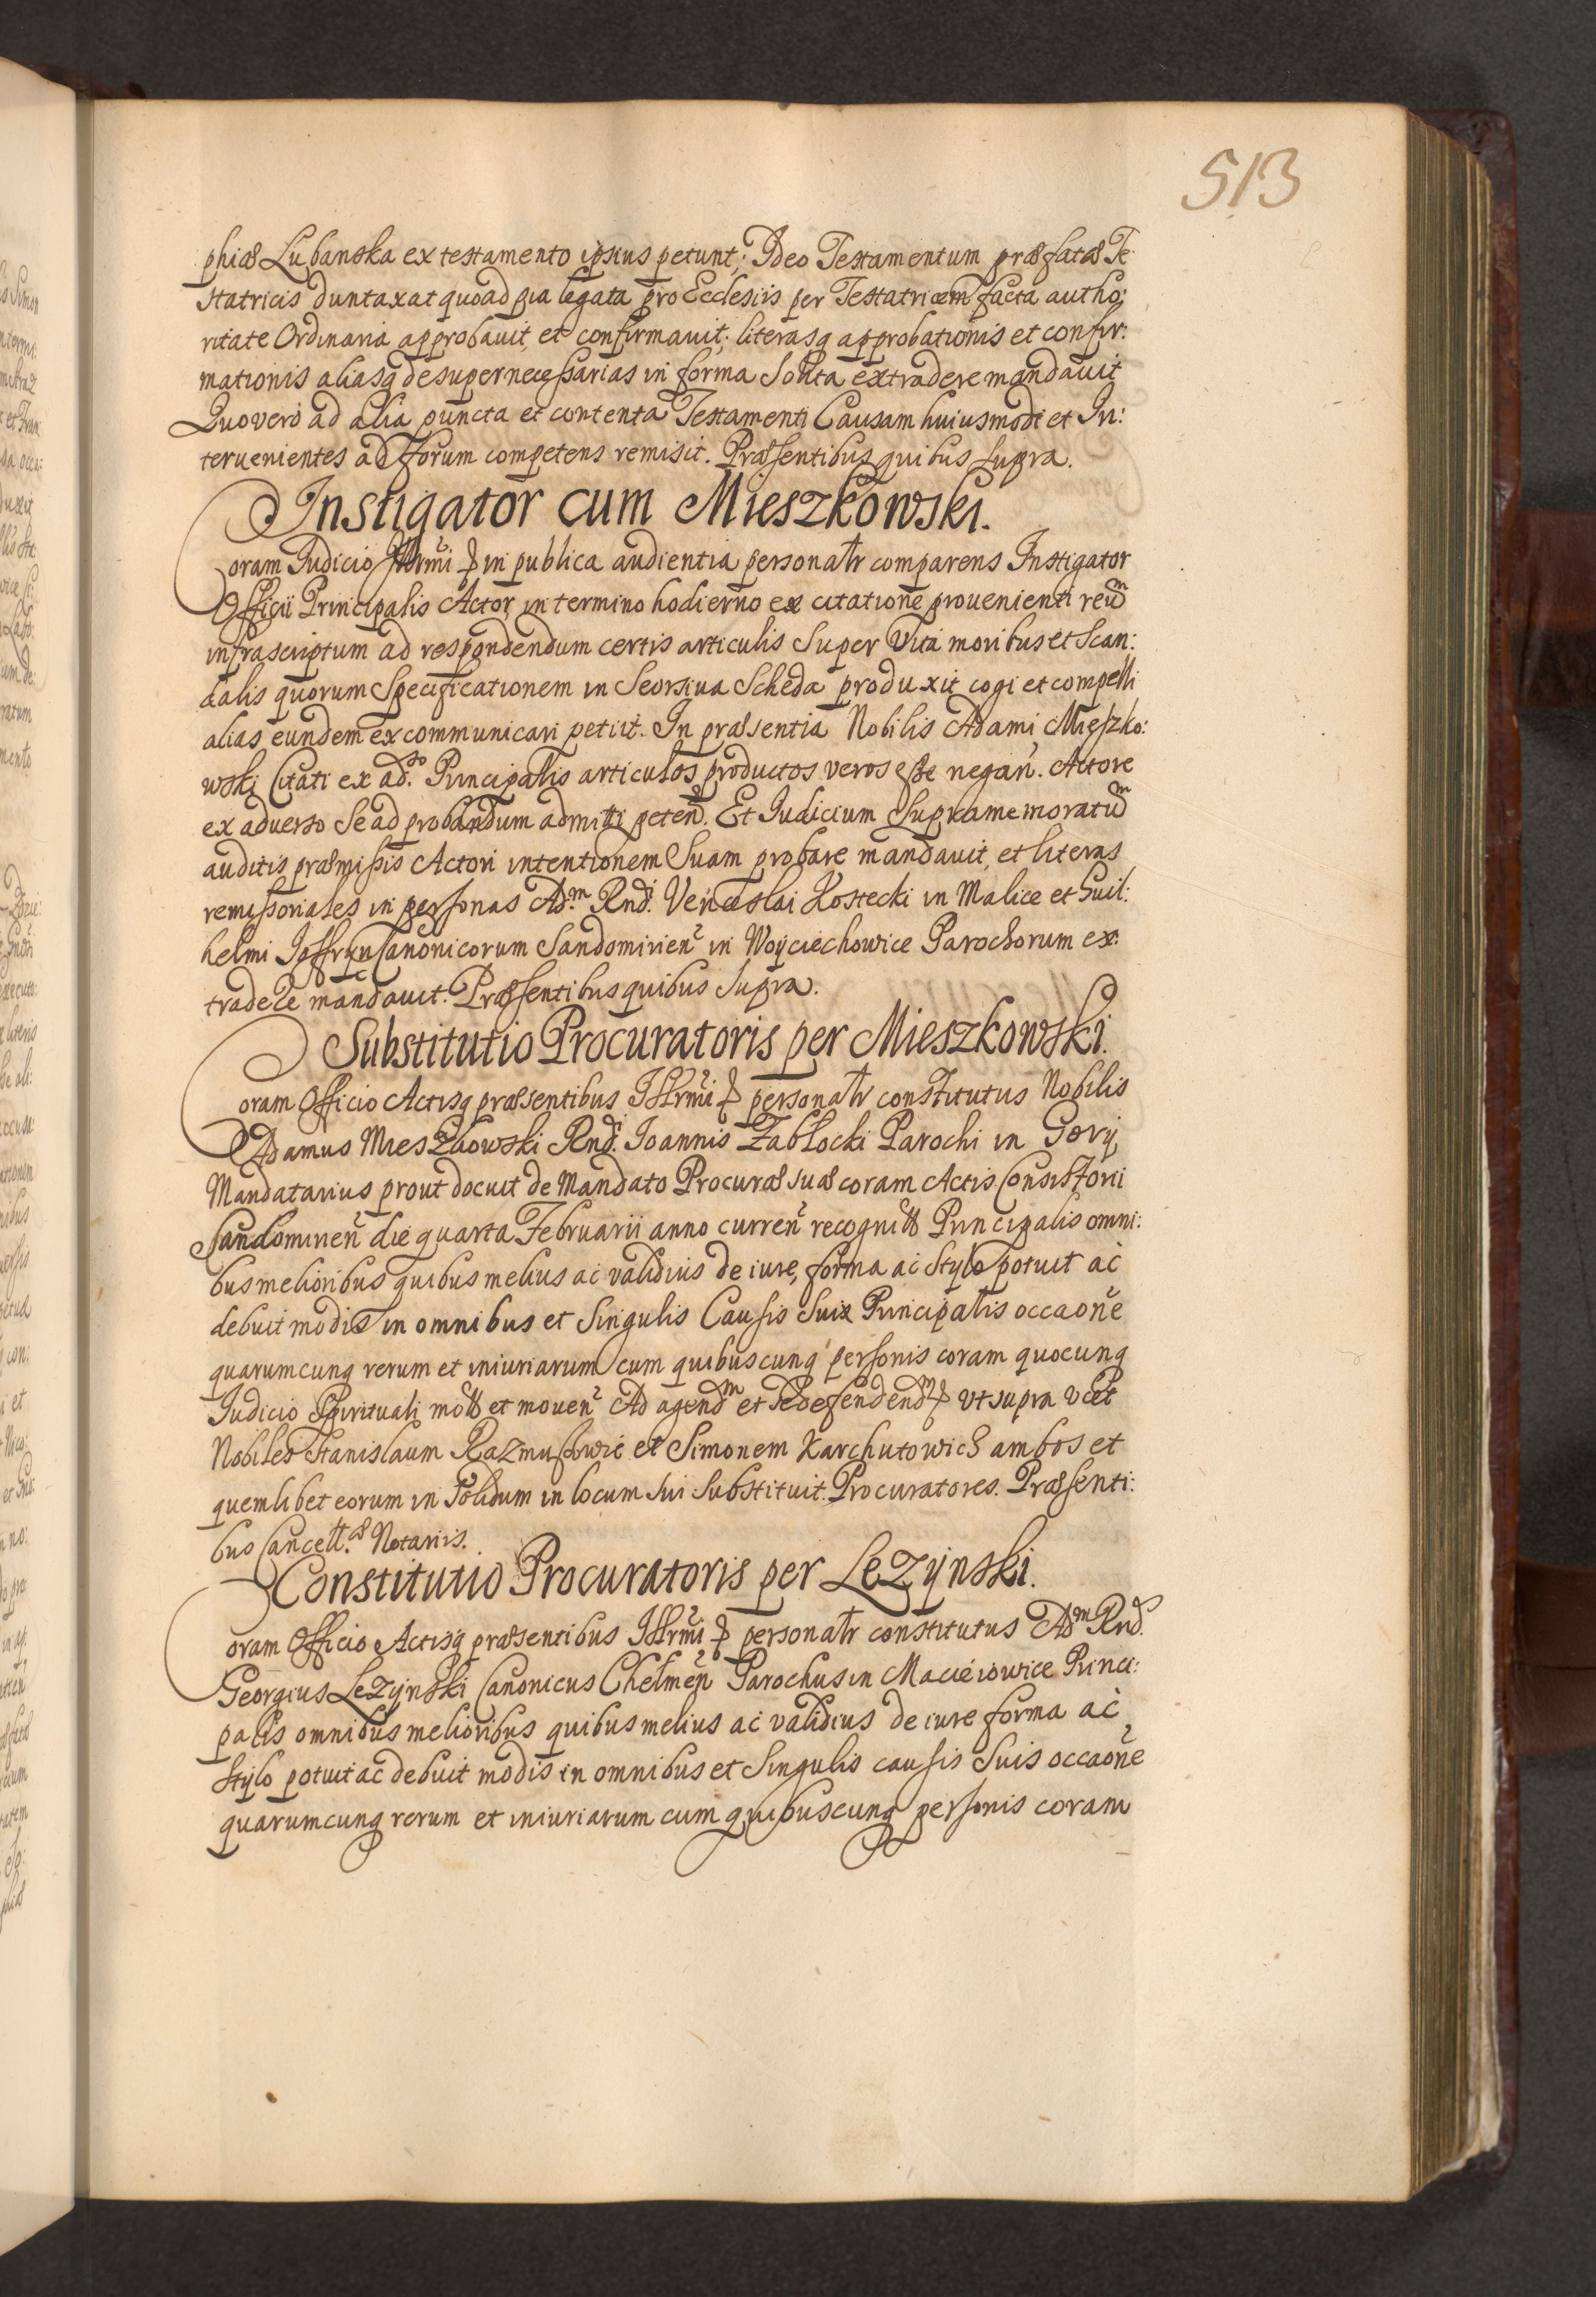 513
phiæ Lubanska ex testamento ipsius petunt; Ideo Testamentum præfatæ Te:
statricis duntaxat quoad pia legata pro Ecclesiis per Testatricem facta autho:
ritate Ordinaria approbauit, et confirmauit; literasq approbationis et confir:
mationis aliasq desuper necessarias in forma solita extradere mandauit
Quo vero ad alia puncta et contenta Testamenti Causam huiusmodi et In:
teruenientes ad Forum competens remisit. Præsentibus quibus supra.
Instigator cum Mieszkowski.
Coram Iudicio Illrmi & in publica audientia personalr comparens Instigator
Officii Principalis Actor, in termino hodierno ex citatione prouenienti reum
infrascriptum ad respondendum certis articulis super Vita moribus et Scan:
dalis quorum Specificationem in Seorsiua Scheda produxit cogi et compelli
alias eundem excommunicari petiit. In præsentia Nobilis Adami Mieszko:
wski Citati ex ad.so Principalis articulos productos veros esse negan. Actore
ex aduerso se ad probandum admitti peten. Et Iudicium Supramemoratum
auditis præmissis Actori intentionem Suam probare mandauit, et literas
remissoriales in personas Ad.m Rnd. Venceslai Kostecki in Malice et Guil:
helmi Joffryn Canonicorum Sandomirien in Woyciechowice Parochorum ex:
tradere mandauit. Præsentibus quibus supra.
Substitutio Procuratoris per Mieszkowski.
Coram Officio Actisq præsentibus Illrmi & personalr constitutus Nobilis
Adamus Mieszkowski Rnd. Ioannis Zabłocki Parochi in Gory
Mandatarius prout docuit de Mandato Procuræ suæ coram Actis Consistorii
Sandomirien die quarta Februarii anno curren recognitt Principalis omni:
bus melioribus quibus melius ac validius de iure, forma ac Stylo potuit ac
debuit modis in omnibus et Singulis Causis Suis Principalis occaone
quarumcunq rerum et iniuriarum cum quibuscunq personis coram quocunq
Iudicio Spirituali mott et mouen Ad agendm et Se defendendm & vt supra vcet
Nobiles Stanislaum Razmusowic et Simonem Karchutowicz ambos et
quemlibet eorum in Solidum in locum sui Substituit Procuratores. Præsenti:
bus Cancell.æ Notariis.
Constitutio Procuratoris per Lezynski.
Coram Officio Actisq præsentibus Illrmi & personalr constitutus Adm Rnd.
Georgius Lezynski Canonicus Chelmen Parochus in Macieiowice Princi:
palis omnibus melioribus quibus melius ac validius de iure forma ac
Stylo potuit ac debuit modis in omnibus et Singulis causis Suis occaone
quarumcunq rerum et iniuriarum cum quibuscunq personis coram